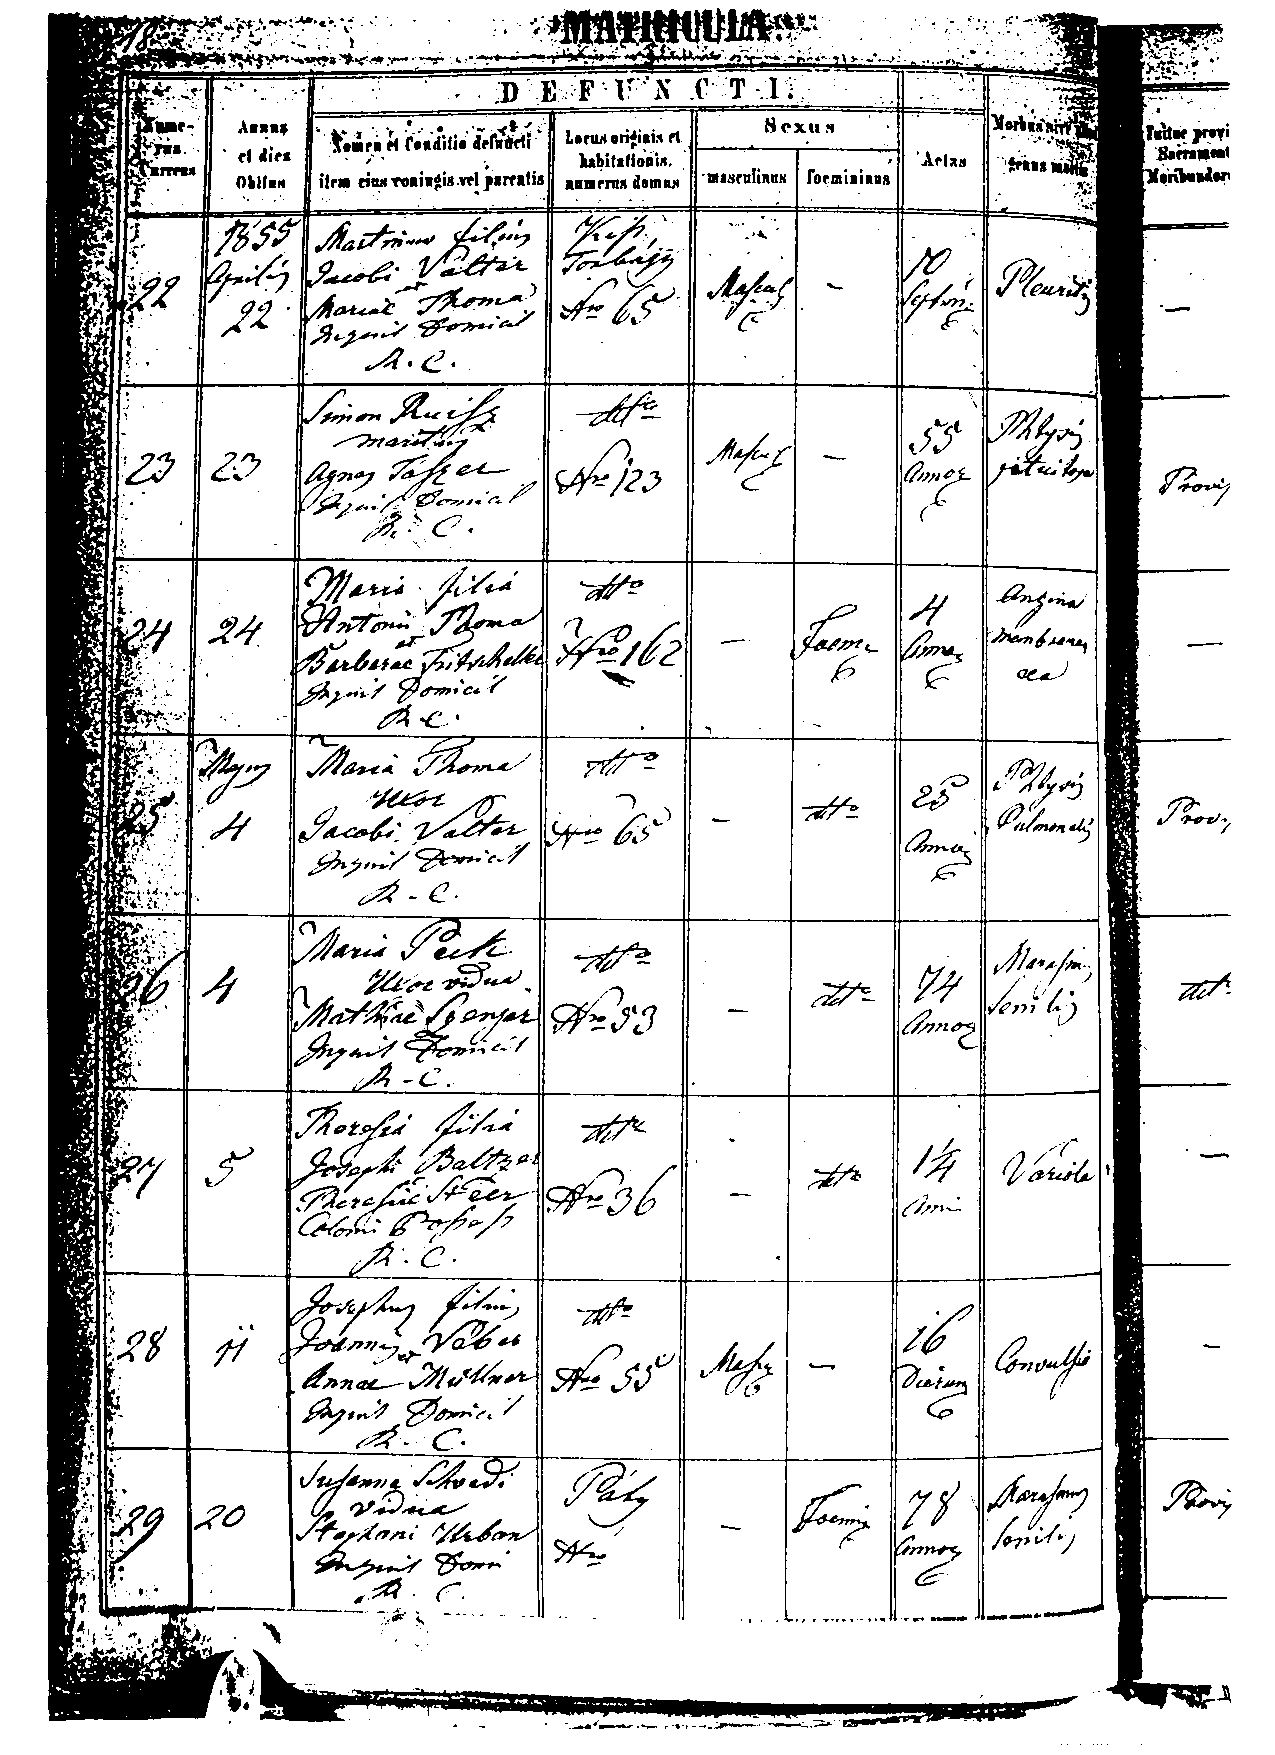 18
MATRICULA
DEFUNCTI.
Nume-
rus
Currens
Annus
et dies
Obitus
Nomen et Conditio defuncti
item ejus conjugis vel parentis
Locus originis et
habitationis,
numerus domus
Sexus
masculinus
foemininus
Aetas
Morbus sive
genus mortis
Sacrament
22
1855
Aprilis
22
Martinus filius
Jacobi Valter
et
Mariae Thoma
Inquil Domicil
R. C.
Kiss
Torbágy
Nro 65
Mascul
-
10
Septim
Pleuritis
-
23
23
Simon Ruisz
maritus
Agnes Taszer
Inquil Domicil
R. C.
dtto
Nro 123
Mascul
-
55
Annor
Phtysis
pituitosa
Provis
24
24
Maria filia
Antonii Thoma
et
Barbarae Fritschelke
Inquil Domicil
R. C.
dtto
Nro 162
-
Foem
4
Annor
Angina
membrana
cea
-
25
Majus
4
Maria Thoma
Uxor
Jacobi Valter
Inquil Domicil
R. C.
dtto
Nro 65
-
dtto
25
Annor
Phtysis
Pulmonalis
Provis
26
4
Maria Peck
Uxor vidua
Mathiae Spenger
Inquil Domicil
R. C.
dtto
Nro 53
-
dtto
74
Annor
Marasmus
Senilis
dtto
27
5
Theresia filia
Josephi Baltzer
et
Theresiae Steer
Coloni Possess
R. C.
dtto
Nro 36
-
dtto
1/4
Anni
Variola
-
28
11
Josephus filius
Joannis Veber
et
Annae Müllner
Inquil Domicil
R. C.
dtto
Nro 55
Mascul
-
16
Dierum
Convulsio
-
29
20
Susanna Schvedi
vidua
Stephani Urban
Inquil Domi
R. C.
Páty
Nro
-
Foemin
78
Annor
Marasmus
Senilis
Provis